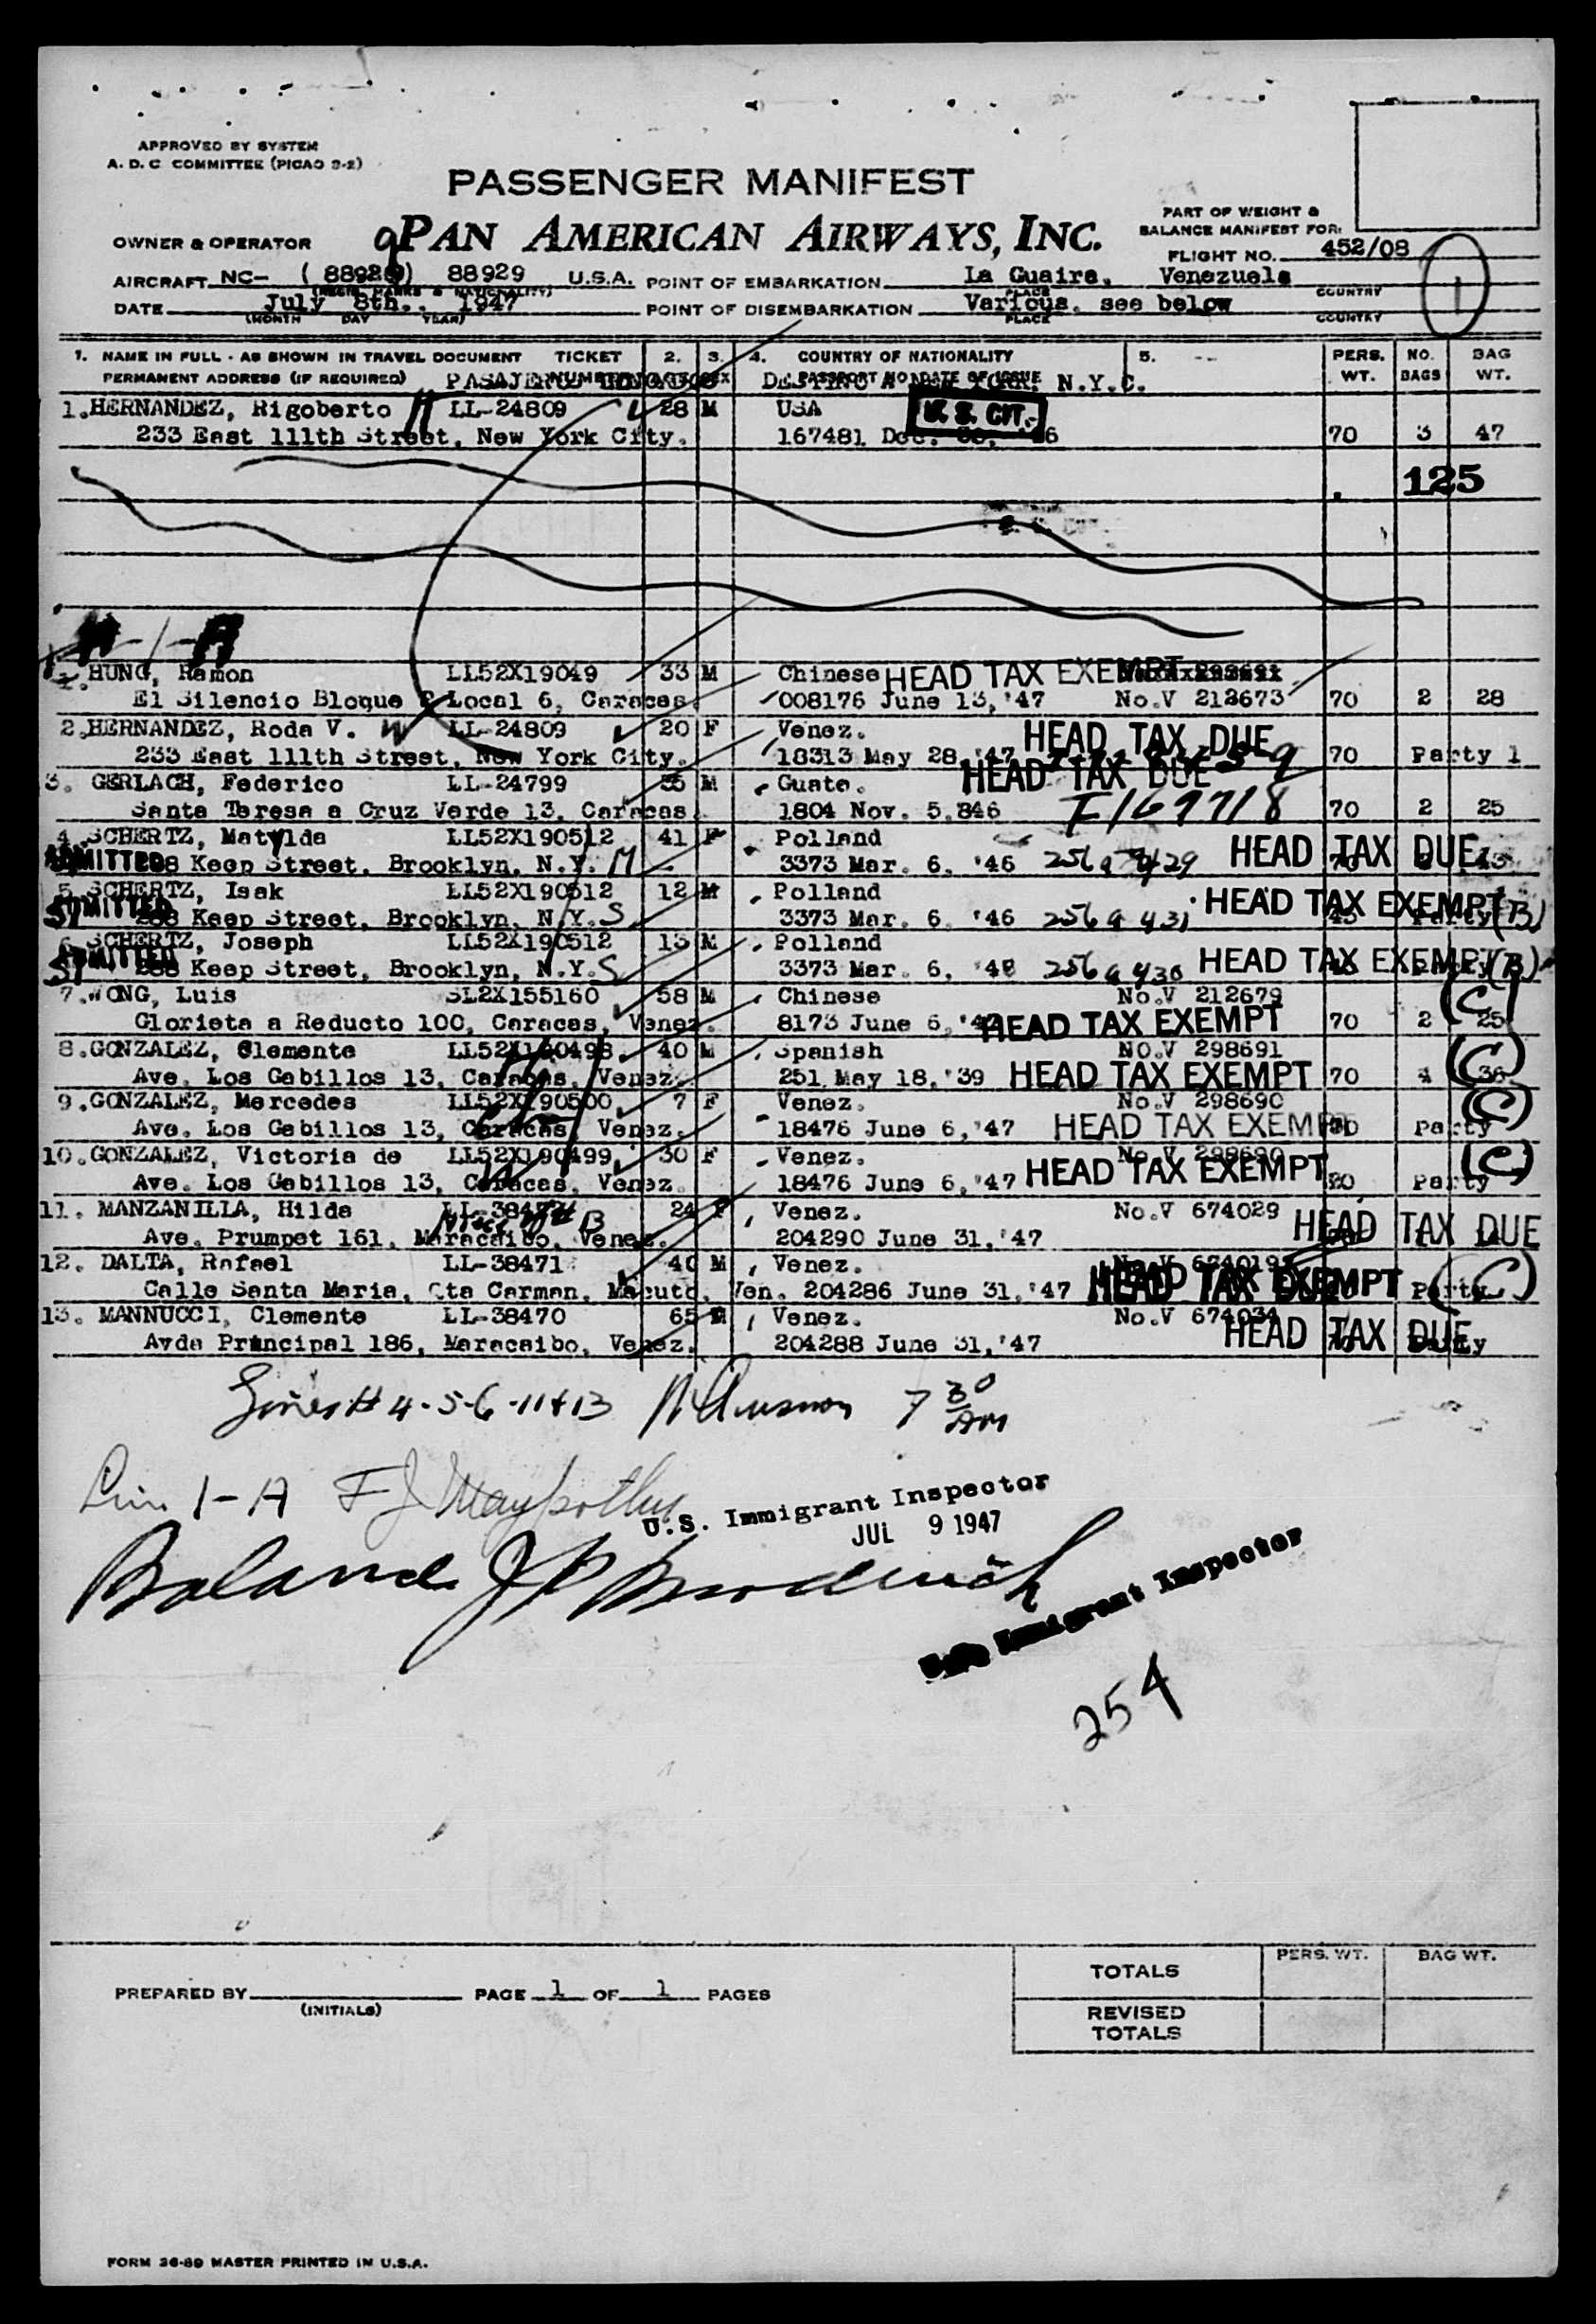 APPROVED BY SYSTEM
A. D. C COMMITTEE (PICAO 9-2)
PASSENGER MANIFEST
OWNER & OPERATOR PAN AMERICAN AIRWAYS, INC.
PART OF WEIGHT &
BALANCE MANIFEST FOR:
FLIGHT NO. 452/08
AIRCRAFT NC- 88929 U.S.A. POINT OF EMBARKATION La Guaira, Venezuela
PLACE COUNTRY
DATE July 8th., 1947 POINT OF DISEMBARKATION Various, see below
(MONTH DAY YEAR) PLACE COUNTRY
1. NAME IN FULL - AS SHOWN IN TRAVEL DOCUMENT TICKET 2. 3. 4. COUNTRY OF NATIONALITY 5. -- PERS. NO. BAG
PERMANENT ADDRESS (IF REQUIRED) NUMBER SEX PASSPORT NO DATE OF ISSUE N.Y.C. WT. BAGS WT.
1. HERNANDEZ, Rigoberto LL-24809 28 M USA U. S. CIT.
233 East 111th Street, New York City. 167481 Dec. 70 3 47
125
1-A
HUNG, Ramon LL52X19049 33 M Chinese HEAD TAX EXEMPT
El Silencio Bloque Local 6, Caracas. 008176 June 13, '47 No.V 213673 70 2 28
2. HERNANDEZ, Roda V. LL-24809 20 F Venez. HEAD TAX DUE
233 East 111th Street, New York City. 18313 May 28, '47 70 Party 1
3. GERLACH, Federico LL-24799 M Guate. HEAD TAX DUE
Santa Teresa a Cruz Verde 13, Caracas. 1804 Nov. 5, 846 I169718 70 2 25
4. SCHERTZ, Matylda LL52X190512 41 F Polland
ADMITTED Keep Street, Brooklyn, N.Y. M 3373 Mar. 6, '46 HEAD TAX DUE
5. SCHERTZ, Isak LL52X190512 12 M Polland
ADMITTED Keep Street, Brooklyn, N.Y. S 3373 Mar. 6, '46 256a431 HEAD TAX EXEMPT Party (B)
6. SCHERTZ, Joseph LL52X190512 13 M Polland
ADMITTED Keep Street, Brooklyn, N.Y. S 3373 Mar. 6, 256a430 HEAD TAX EXEMPT (B)
7. WONG, Luis SL2X155160 58 M Chinese No.V 212679 (C)
Glorieta a Reducto 100, Caracas, Venez. 8173 June 6, HEAD TAX EXEMPT 70 2 25
8. GONZALEZ, Clemente 40 M Spanish NO.V 298691 (C)
Ave. Los Gabillos 13, Caracas, Venez. 251 May 18, '39 HEAD TAX EXEMPT 70 4 36
9. GONZALEZ, Mercedes LL52X190500 7 F Venez. No.V 298690 (C)
Ave. Los Gabillos 13, Caracas, Venez. 18476 June 6, '47 HEAD TAX EXEMPT Party
10. GONZALEZ, Victoria de LL52X190499 30 F Venez. No.V 298690 (C)
Ave. Los Gabillos 13, Caracas, Venez. 18476 June 6, '47 HEAD TAX EXEMPT Party
11. MANZANILLA, Hilda 24 F Venez. No.V 674029 HEAD TAX DUE
Ave. Prumpet 161, Maracaibo, Venez. 204290 June 31, '47
12. DALTA, Rafael LL-38471 40 M Venez.
Calle Santa Maria, Qta Carman, Macuto, Ven. 204286 June 31, '47 HEAD TAX EXEMPT Party (C)
13. MANNUCCI, Clemente LL-38470 65 M Venez. No.V 674034
Avda Principal 186, Maracaibo, Venez. 204288 June 31, '47 HEAD TAX DUE
Lines # 4-5-6-11+13 7 30 AM
Line 1-A
U.S. Immigrant Inspector
JUL 9 1947
Balance
Immigrant Inspector
254
TOTALS PERS. WT. BAG WT.
PREPARED BY PAGE 1 OF 1 PAGES
(INITIALS)
REVISED
TOTALS
FORM 36-89 MASTER PRINTED IN U.S.A.